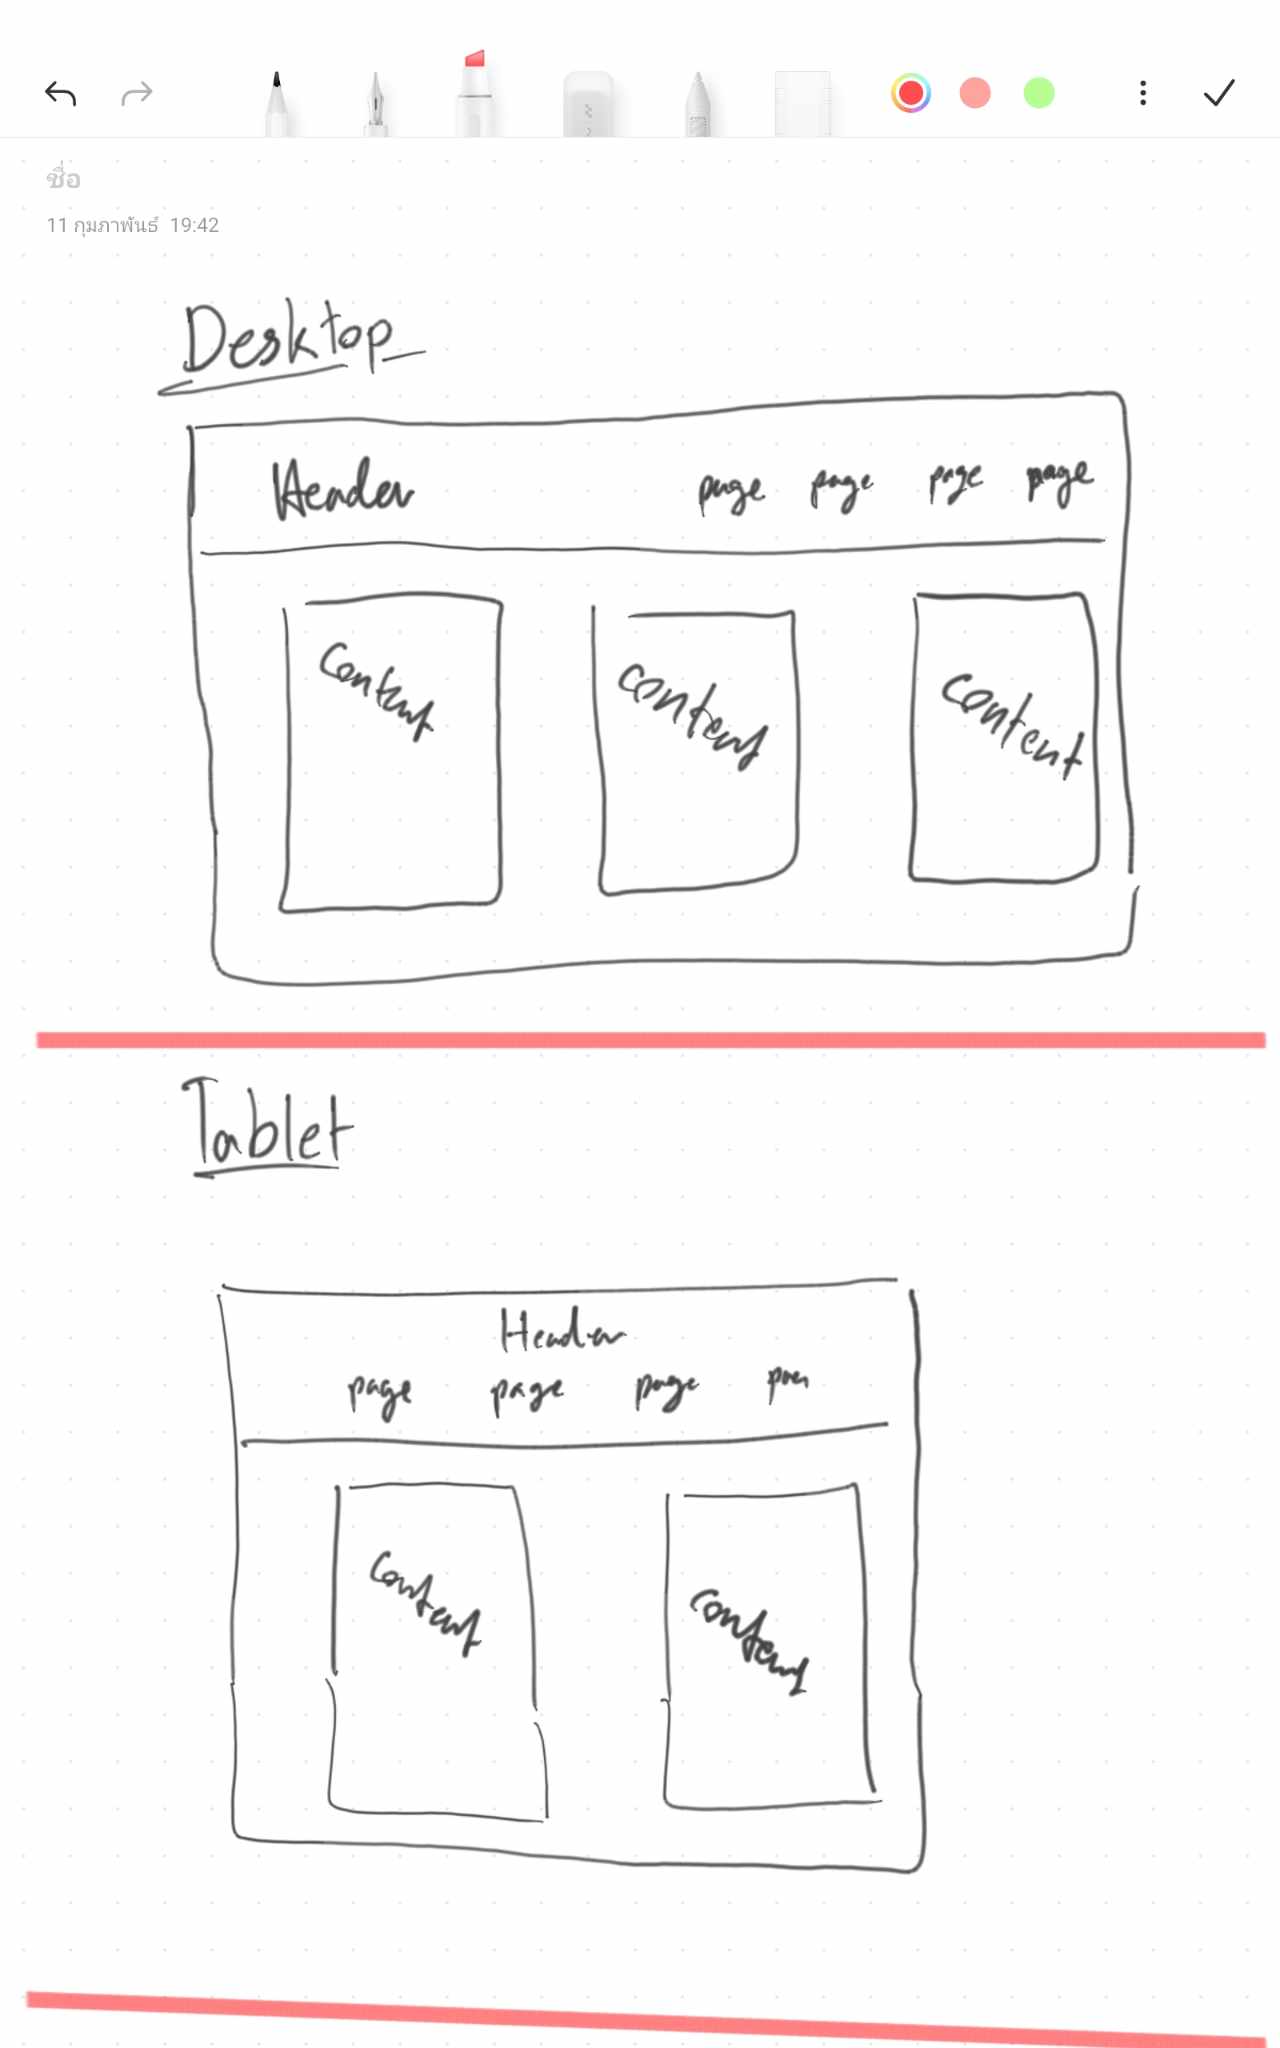 ชื่อ
11 กุมภาพันธ์ 19:42
Desktop
Header page page page page
Content content content
Tablet
Header
page page page
content content